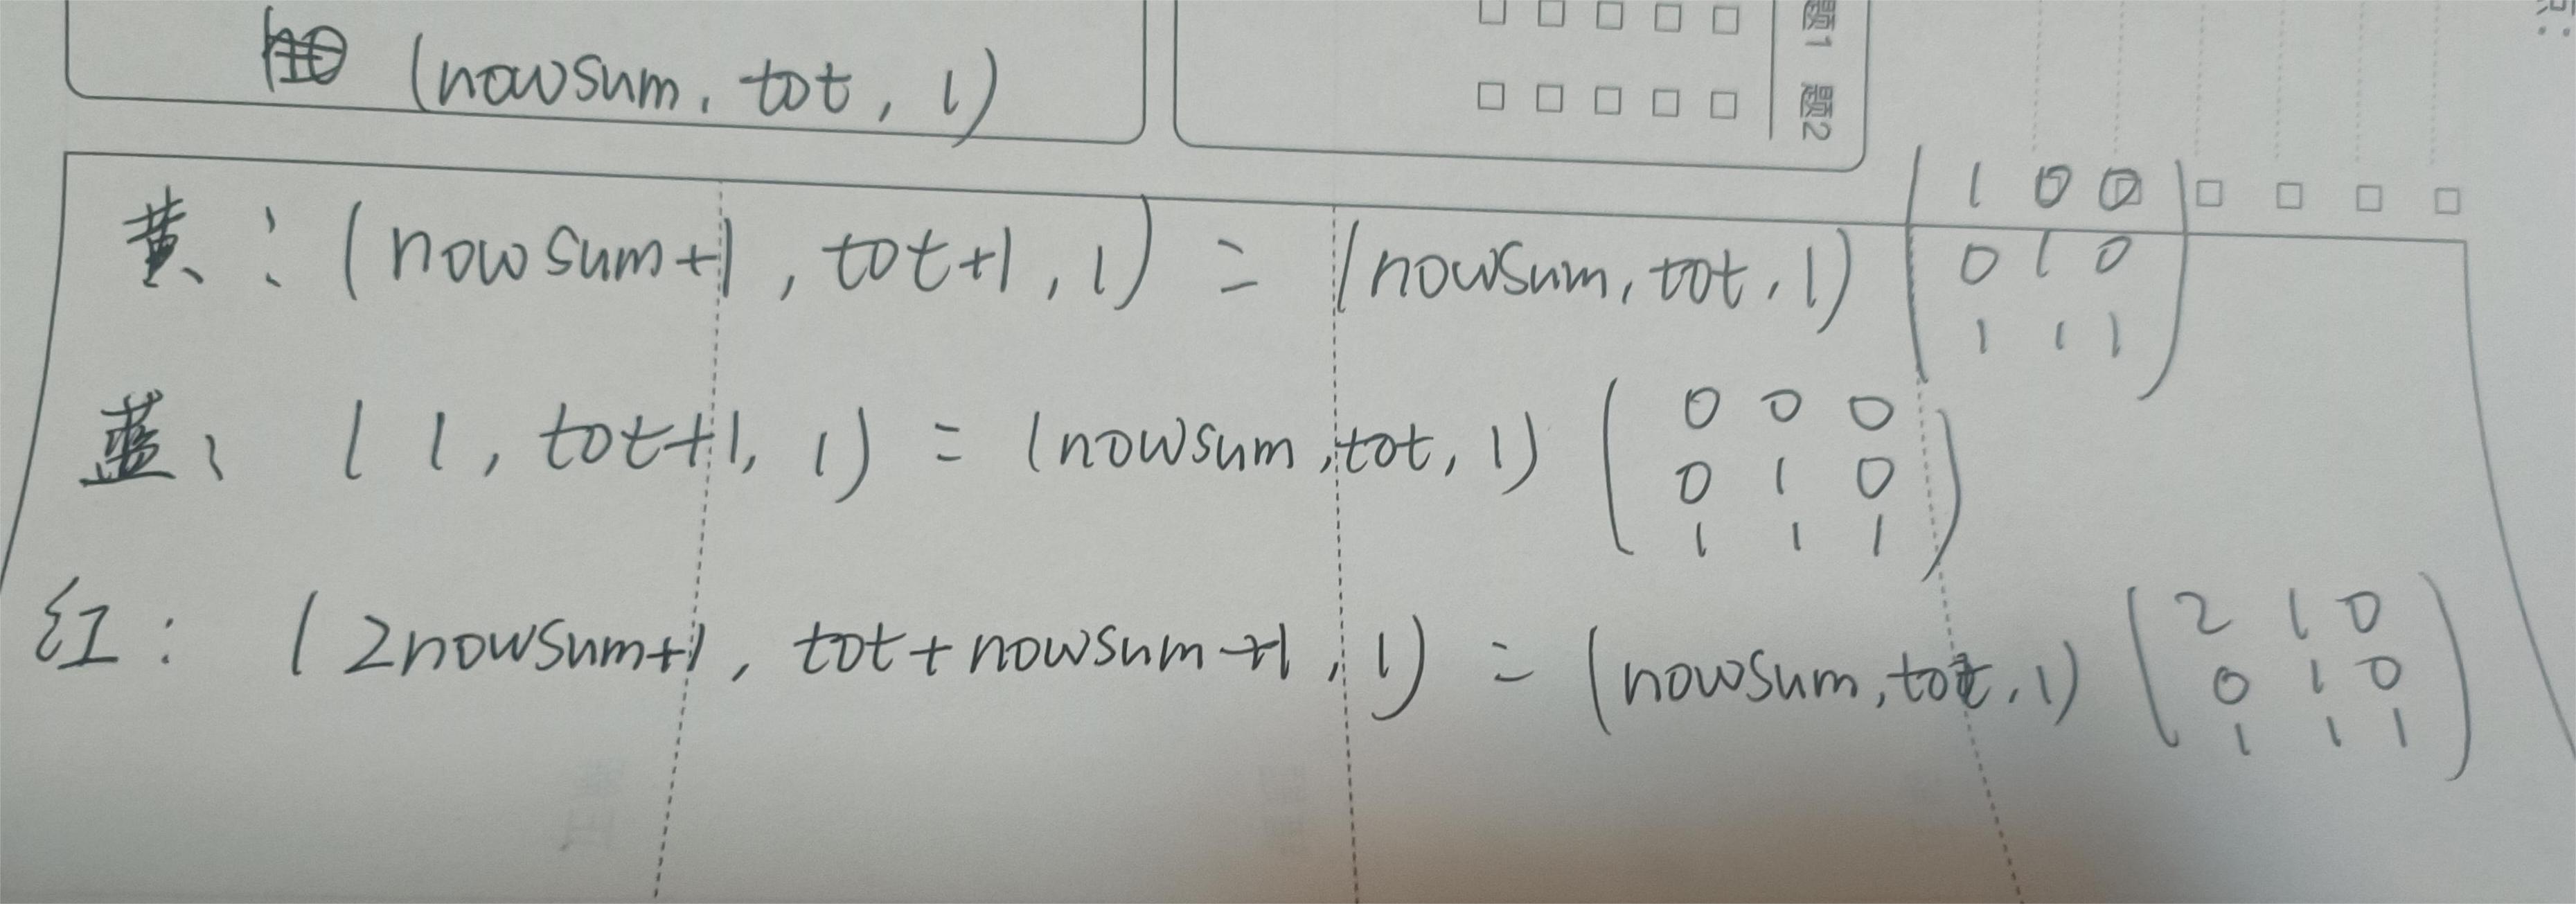 (nowsum, tot, 1)
题1
题2
黄: (nowsum+1, tot+1, 1) = (nowsum, tot, 1) (1 0 0
0 1 0
1 1 1)
蓝: (1, tot+1, 1) = (nowsum, tot, 1) (0 0 0
0 1 0
1 1 1)
红: (2nowsum+1, tot+nowsum+1, 1) = (nowsum, tot, 1) (2 1 0
0 1 0
1 1 1)